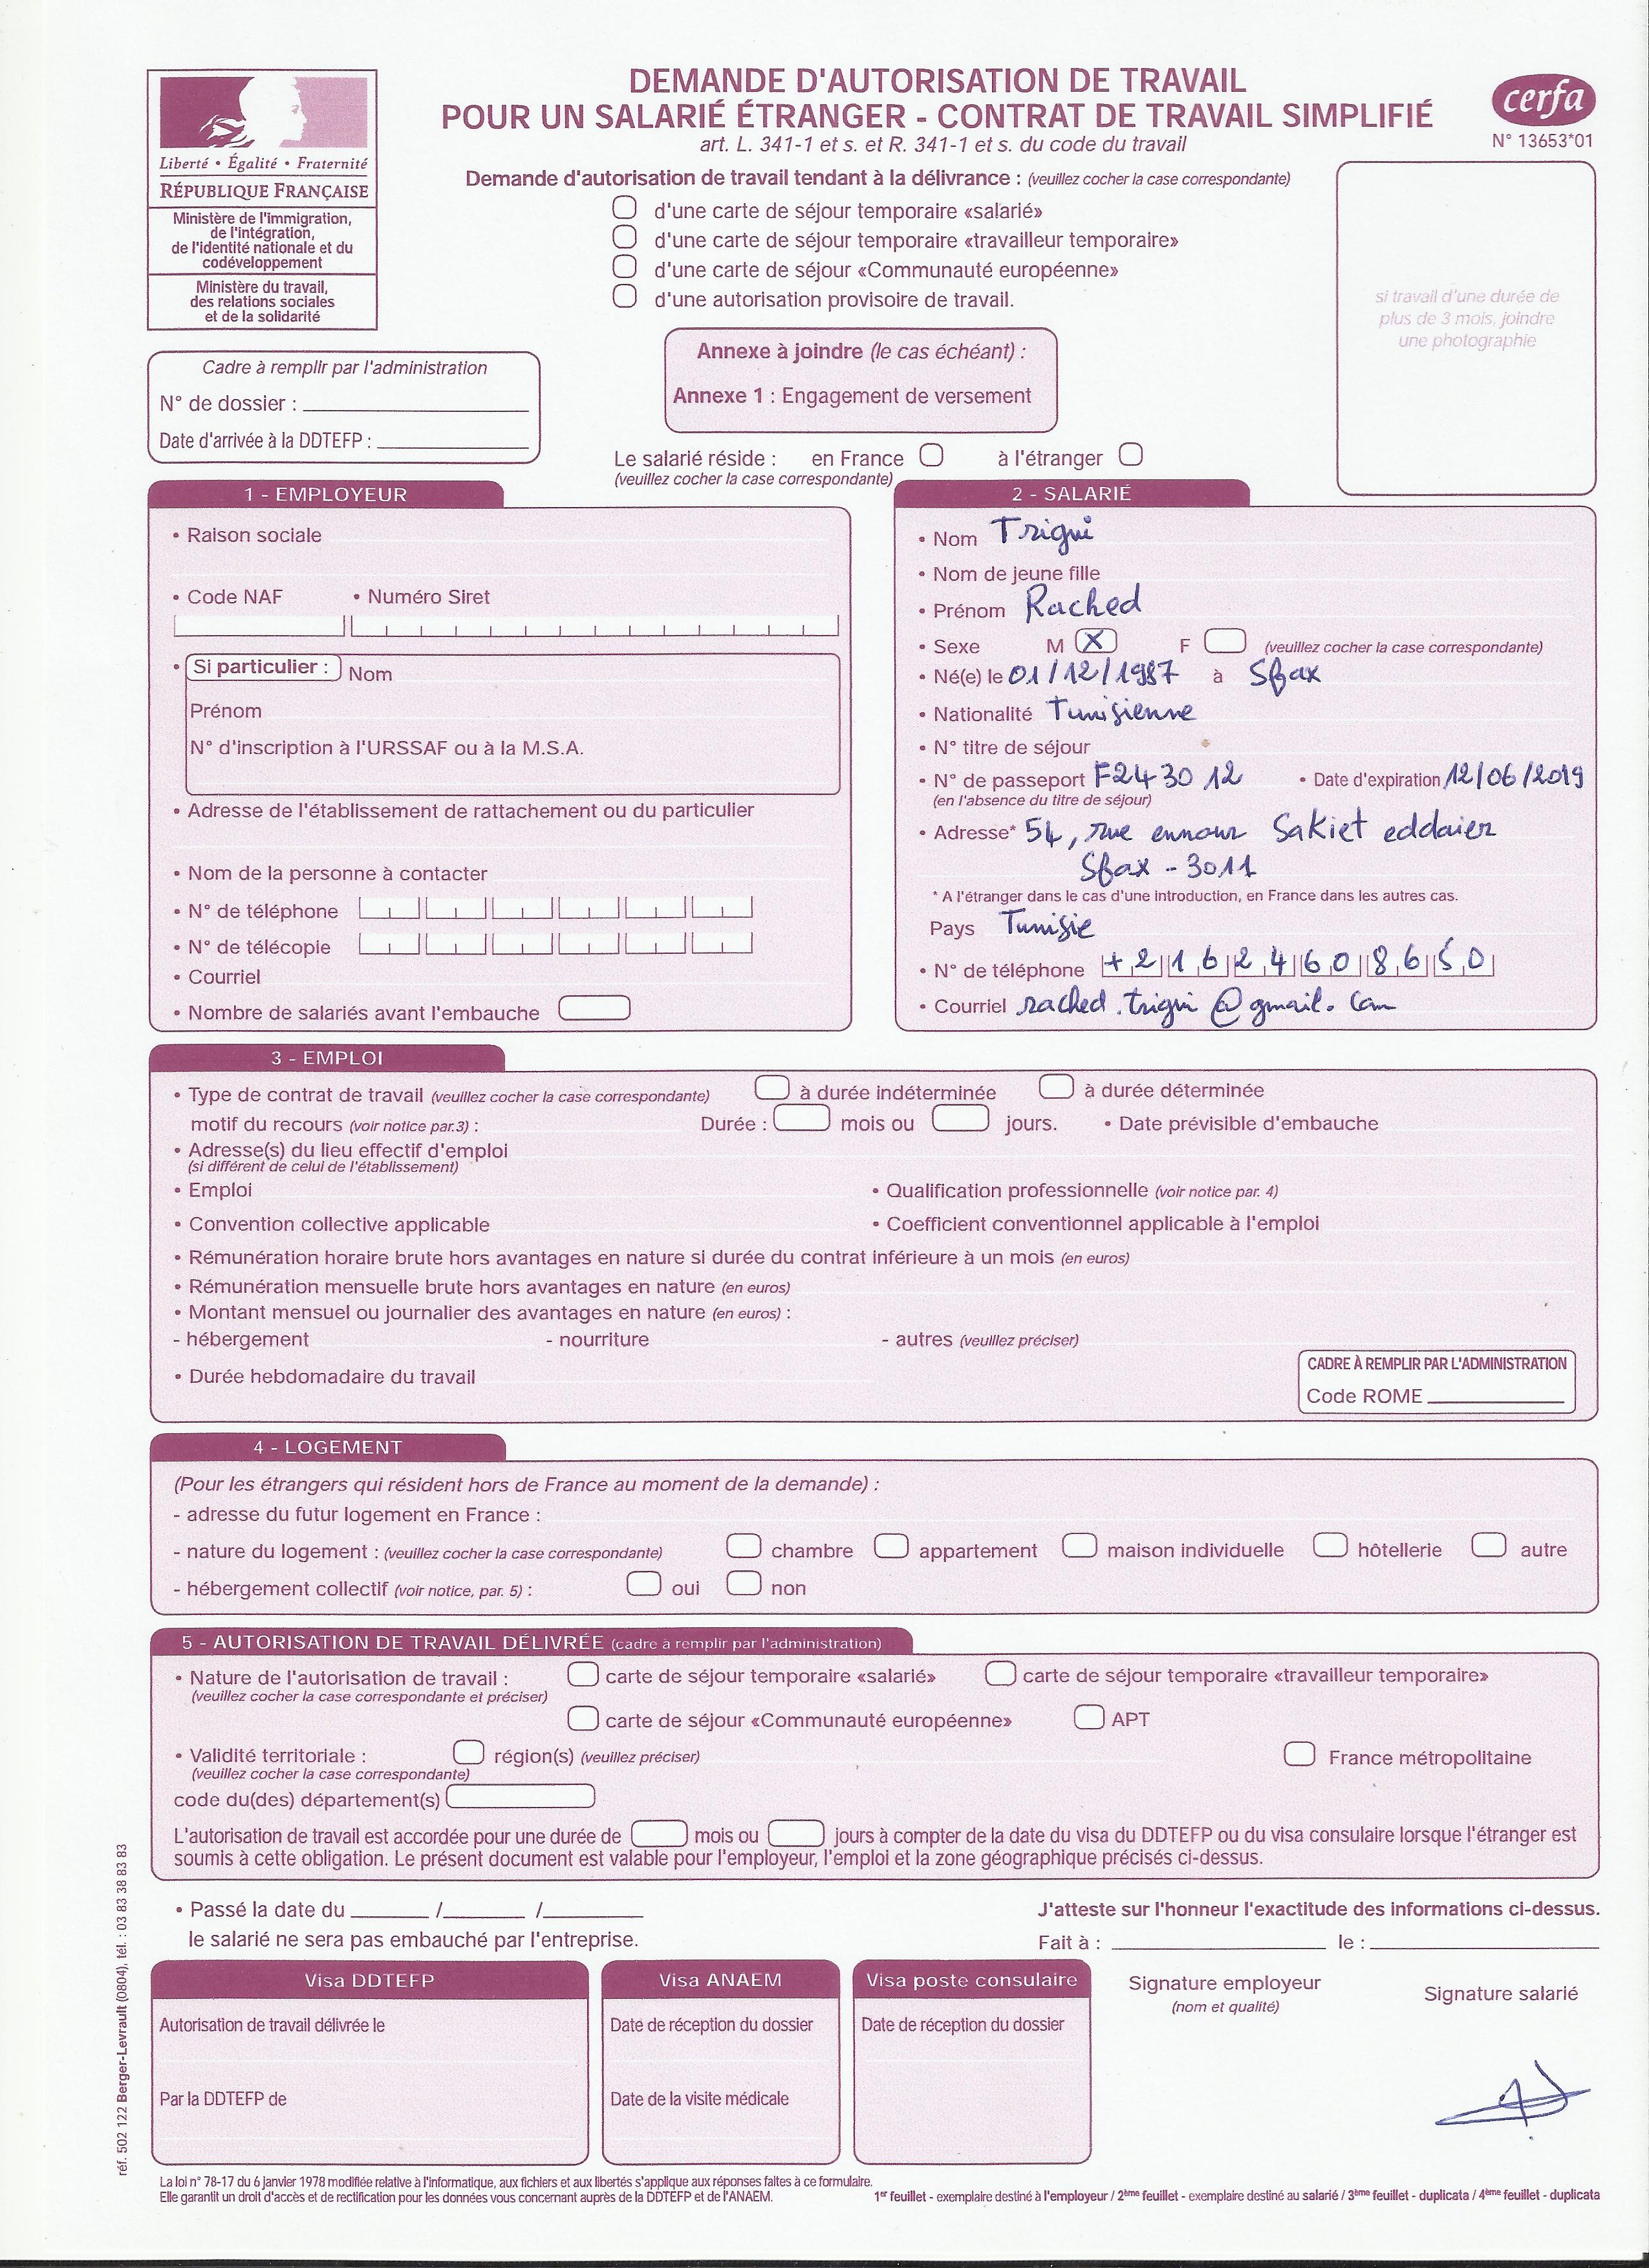 DEMANDE D'AUTORISATION DE TRAVAIL
POUR UN SALARIÉ ÉTRANGER - CONTRAT DE TRAVAIL SIMPLIFIÉ
art. L. 341-1 et s. et R. 341-1 et s. du code du travail
cerfa
N° 13653*01
Liberté • Égalité • Fraternité
RÉPUBLIQUE FRANÇAISE
Ministère de l'immigration,
de l'intégration,
de l'identité nationale et du
codéveloppement
Ministère du travail,
des relations sociales
et de la solidarité
Demande d'autorisation de travail tendant à la délivrance : (veuillez cocher la case correspondante)
d'une carte de séjour temporaire «salarié»
d'une carte de séjour temporaire «travailleur temporaire»
d'une carte de séjour «Communauté européenne»
d'une autorisation provisoire de travail.
si travail d'une durée de
plus de 3 mois, joindre
une photographie
Cadre à remplir par l'administration
N° de dossier :
Date d'arrivée à la DDTEFP :
Annexe à joindre (le cas échéant) :
Annexe 1 : Engagement de versement
Le salarié réside : en France à l'étranger
(veuillez cocher la case correspondante)
1 - EMPLOYEUR
• Raison sociale
• Code NAF • Numéro Siret
• Si particulier : Nom
Prénom
N° d'inscription à l'URSSAF ou à la M.S.A.
• Adresse de l'établissement de rattachement ou du particulier
• Nom de la personne à contacter
• N° de téléphone
• N° de télécopie
• Courriel
• Nombre de salariés avant l'embauche
2 - SALARIÉ
• Nom Trigui
• Nom de jeune fille
• Prénom Rached
• Sexe M X F (veuillez cocher la case correspondante)
• Né(e) le 01/12/1987 à Sfax
• Nationalité Tunisienne
• N° titre de séjour
• N° de passeport F243012 • Date d'expiration 12/06/2019
(en l'absence du titre de séjour)
• Adresse* 54, rue ennour Sakiet eddaier
Sfax - 3011
* A l'étranger dans le cas d'une introduction, en France dans les autres cas.
Pays Tunisie
• N° de téléphone +21624608650
• Courriel rached.trigui@gmail.com
3 - EMPLOI
• Type de contrat de travail (veuillez cocher la case correspondante) à durée indéterminée à durée déterminée
motif du recours (voir notice par.3) : Durée : mois ou jours. • Date prévisible d'embauche
• Adresse(s) du lieu effectif d'emploi
(si différent de celui de l'établissement)
• Emploi • Qualification professionnelle (voir notice par. 4)
• Convention collective applicable • Coefficient conventionnel applicable à l'emploi
• Rémunération horaire brute hors avantages en nature si durée du contrat inférieure à un mois (en euros)
• Rémunération mensuelle brute hors avantages en nature (en euros)
• Montant mensuel ou journalier des avantages en nature (en euros) :
- hébergement - nourriture - autres (veuillez préciser)
• Durée hebdomadaire du travail
CADRE À REMPLIR PAR L'ADMINISTRATION
Code ROME
4 - LOGEMENT
(Pour les étrangers qui résident hors de France au moment de la demande) :
- adresse du futur logement en France :
- nature du logement : (veuillez cocher la case correspondante) chambre appartement maison individuelle hôtellerie autre
- hébergement collectif (voir notice, par. 5) : oui non
5 - AUTORISATION DE TRAVAIL DÉLIVRÉE (cadre à remplir par l'administration)
• Nature de l'autorisation de travail : carte de séjour temporaire «salarié» carte de séjour temporaire «travailleur temporaire»
(veuillez cocher la case correspondante et préciser)
carte de séjour «Communauté européenne» APT
• Validité territoriale : région(s) (veuillez préciser) France métropolitaine
(veuillez cocher la case correspondante)
code du(des) département(s)
L'autorisation de travail est accordée pour une durée de mois ou jours à compter de la date du visa du DDTEFP ou du visa consulaire lorsque l'étranger est
soumis à cette obligation. Le présent document est valable pour l'employeur, l'emploi et la zone géographique précisés ci-dessus.
• Passé la date du / /
le salarié ne sera pas embauché par l'entreprise.
J'atteste sur l'honneur l'exactitude des informations ci-dessus.
Fait à : le :
Visa DDTEFP
Autorisation de travail délivrée le
Par la DDTEFP de
Visa ANAEM
Date de réception du dossier
Date de la visite médicale
Visa poste consulaire
Date de réception du dossier
Signature employeur
(nom et qualité)
Signature salarié
La loi n° 78-17 du 6 janvier 1978 modifiée relative à l'informatique, aux fichiers et aux libertés s'applique aux réponses faites à ce formulaire.
Elle garantit un droit d'accès et de rectification pour les données vous concernant auprès de la DDTEFP et de l'ANAEM.
1er feuillet - exemplaire destiné à l'employeur / 2ème feuillet - exemplaire destiné au salarié / 3ème feuillet - duplicata / 4ème feuillet - duplicata
réf. 502 122 Berger-Levrault (0804), tél. : 03 83 38 83 83